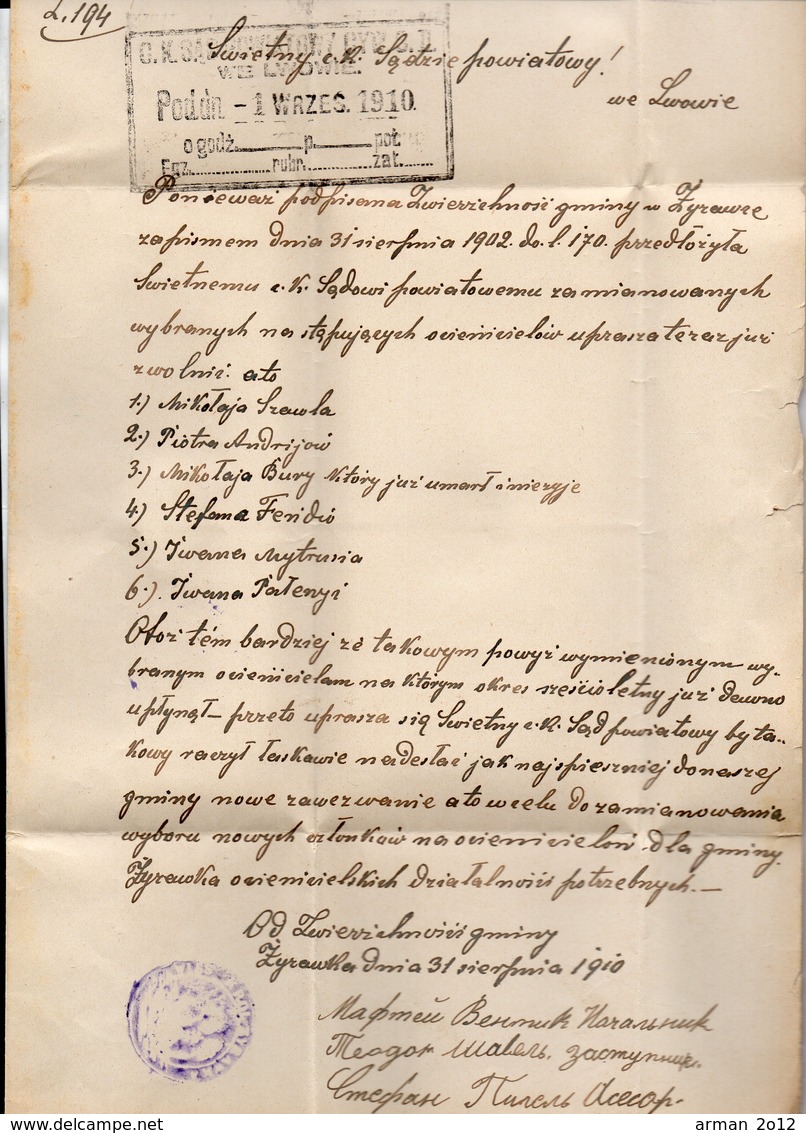 L. 194
C. K. SĄD POWIATOWY CYW. S. II.
WE LWOWIE.
Pod. dn - 1 WRZEŚ. 1910
o godz. p. poł.
Egz. rubr. zał.
Świetny c. K. Sądzie powiatowy!
we Lwowie
Ponieważ podpisana Zwierzchność gminy w Żyrawce
za pismem dnia 31 sierpnia 1902. do. l. 170. przedłożyła
Świetnemu c. K. Sądowi powiatowemu zamianowanych
wybranych następujących ocienicielów uprasza teraz już
zwolnić. ato
1.) Mikołaja Szawla
2.) Piotra Andrijów
3.) Mikołaja Bury Który już umarł i nieżyje
4) Stefana Feńdió
5.) Iwana Mytrusia
6.). Iwana Pałenyi
Otoż tém bardziej że takowym powyż wymienionym wy-
branym ocienicielam na Którym okres sześcioletny już dawno
upłynął – przeto uprasza się Świetny c. K. Sąd powiatowy by ta-
kowy raczył łaskawie nadesłać jak najspieszniej donaszej
gminy nowe zawezwanie ato w celu do zamianowania
wyboru nowych członków na ocienicieloẃ dla gminy.
Żyrawka ocienicielskich działalności potrzebnych. —
Od Zwierzchności gminy
Żyrawka dnia 31 sierpnia 1910
Мафтей Вентик Начальник
Теодор Шавель. заступник.
Стефан Пилель Асесор.
arman 2012